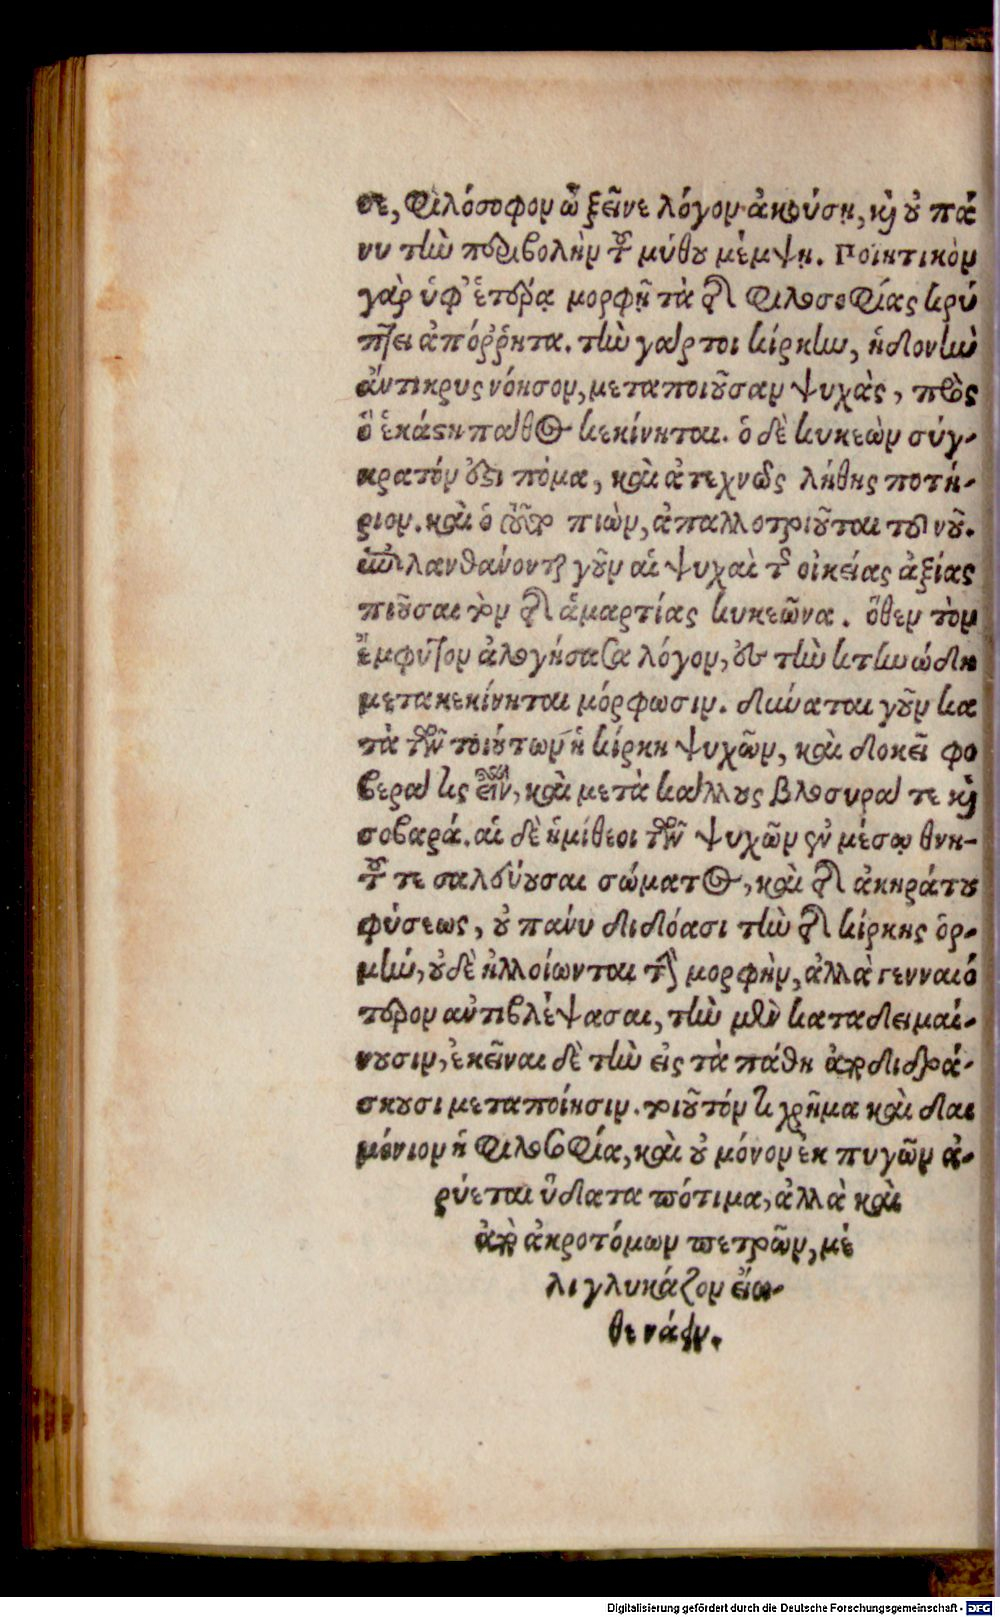 σε, φιλόσοφον ὦ ξεῖνε λόγον ἀκούσῃ, καὶ οὐ πά
νυ τὴν περιβολὴν τοῦ μύθου μέμψῃ. Ποιητικὸν
γὰρ ὑφ' ἑτέρᾳ μορφῇ τὰ τῆς φιλοσοφίας κρύ
πτει ἀπόῤῥητα. τὴν γάρ τοι κίρκην, ἡδονὴν
ἄντικρυς νόησον, μεταποιοῦσαν ψυχὰς, πρὸς
ὃ ἑκάστη πάθος κεκίνηται. ὁ δὲ κυκεὼν σύγ-
κρατόν ἐστι πόμα, καὶ ἀτεχνῶς λήθης ποτή-
ριον. καὶ ὁ πιὼν, ἀπαλλοτριοῦται τοῦ νοῦ.
ἐπιλανθάνονται γοῦν αἱ ψυχαὶ τῆς οἰκείας ἀξίας
πιοῦσαι τὸν τῆς ἁμαρτίας κυκεῶνα. ὅθεν τὸν
ἔμφυτον ἀλογήσασα λόγον, ἐς τὴν κτηνώδη
μετακεκίνηται μόρφωσιν. δύναται γοῦν κα
τὰ τῶν τοιούτων ἡ κίρκη ψυχῶν, καὶ δοκεῖ φο
βερά τις εἶναι, καὶ μετὰ κάλλους βλοσυρά τε καὶ
σοβαρά. αἱ δὲ ἡμίθεοι τῶν ψυχῶν ἐν μέσῳ θνη-
τοῦ τε σαλεύουσαι σώματος, καὶ τῆς ἀκηράτου
φύσεως, οὐ πάνυ διδόασι τὴν τῆς κίρκης ὁρ-
μὴν, οὐδὲ ἠλλοίωνται τὴν μορφὴν, ἀλλὰ γενναιό
τερον ἀντιβλέψασαι, τὴν μὲν καταδειμαί-
νουσιν, ἐκεῖναι δὲ τὴν εἰς τὰ πάθη παραδιδρά-
σκουσι μεταποίησιν. τοιοῦτόν τι χρῆμα καὶ δαι
μόνιον ἡ φιλοσοφία, καὶ οὐ μόνον ἐκ πυγῶν ἀ-
ρύεται ὕδατα πότιμα, ἀλλὰ καὶ
παρὰ ἀκροτόμων πετρῶν, μέ
λι γλυκάζον εἴω-
θε νάειν.
Digitalisierung gefördert durch die Deutsche Forschungsgemeinschaft - DFG